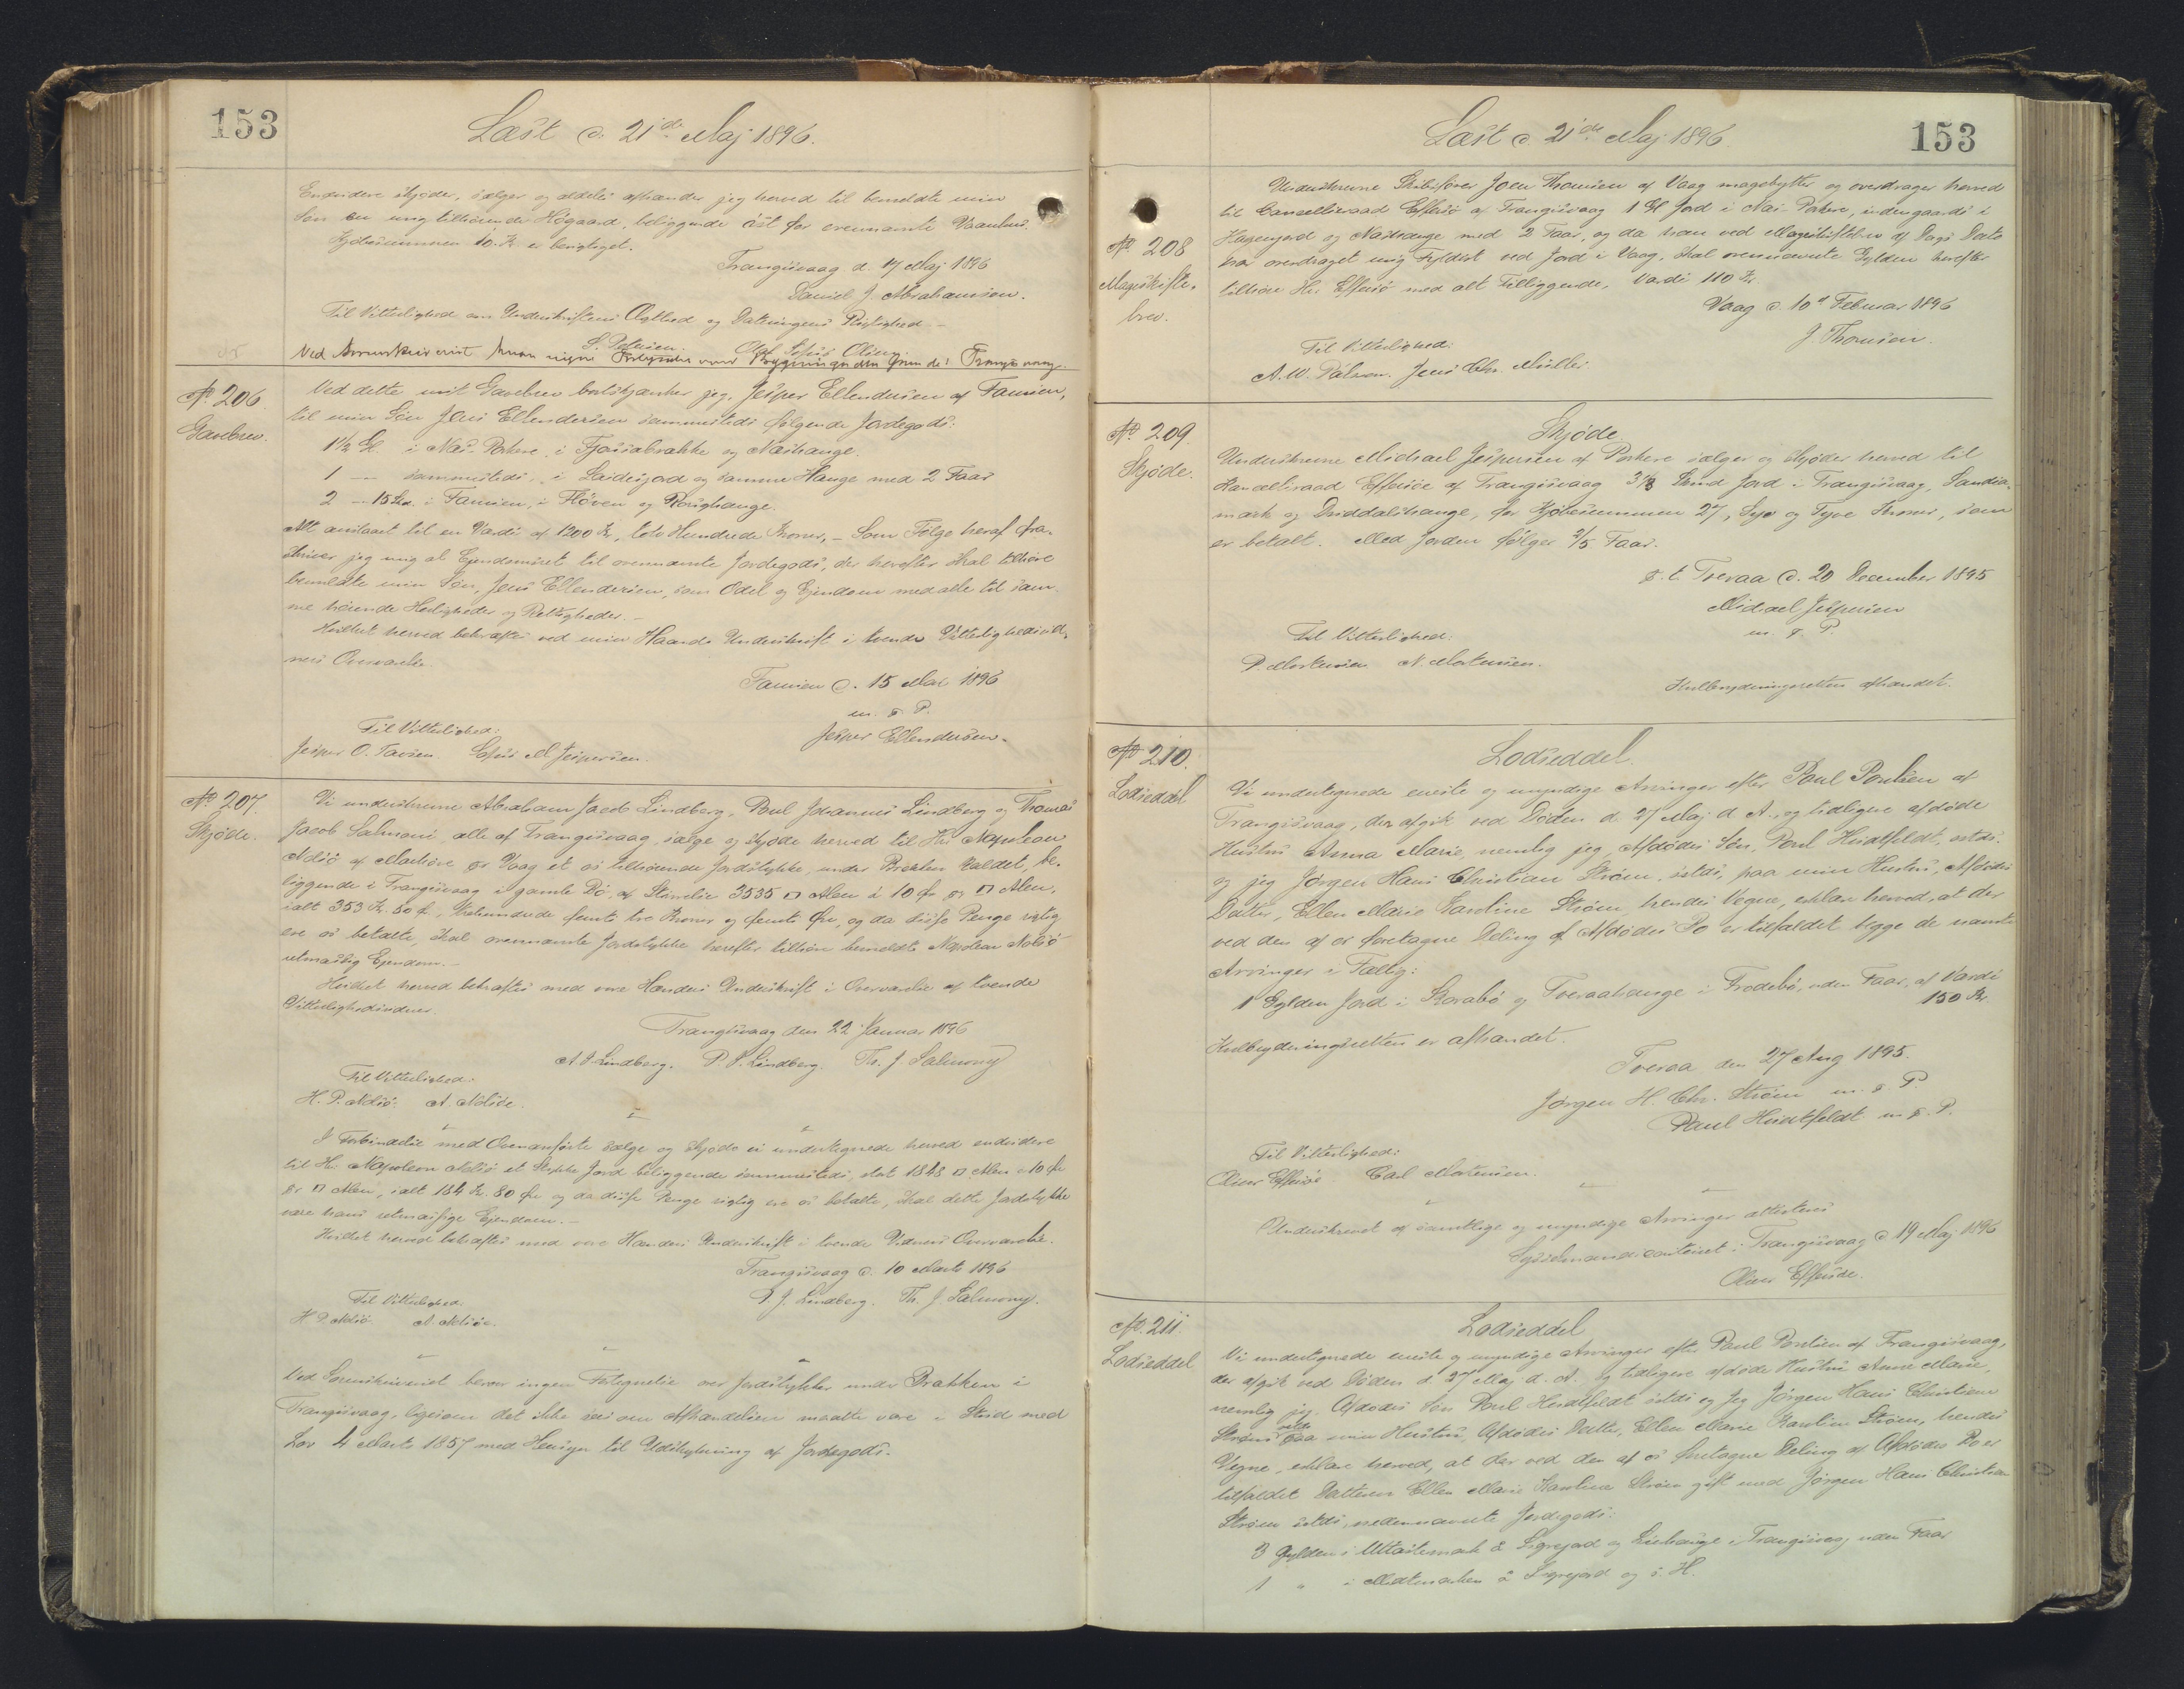 153
Læst d. 21de Maj 1896.
Endvidere skjøder, sælger og aldeles afhænder jeg herved til bemeldte min
Søn en mig tilhørende Høgaard, beliggende øst for ovennævnte Vaanhus.
Kjøbesummen 10 Kr er berigtiget.
Trangisvaag d. 17 Maj 1896
Daniel J. Abrahamsen.
Til Vitterlighed om Underskriftens Ægthed og Dateringens Rigtighed –
S. Petersen. Olaf Sofus Olsen.
Ved Sorenskriveriet haves ingen over Bygningen den i Trangisvaag.
No 206.
Gavebrev.
Ved dette mit Gavebrev bortskjænker jeg, Jesper Ellendersen af Famien,
til min Søn Jens Ellendersen sammesteds følgende Jordegods:
1½ Gl. i Næs-Porkere, i Fjosiabrakke og Næshauge.
1 — sammesteds, i Laidisjord og samme Hauge med 2 Faar
2 — 15 Sk. i Famien, i Fløven og Rosighauge.
Alt anslaaet til en Værdi af 1200 Kr, tolv Hundrede Kroner, – Som Følge heraf fra-
skriver jeg mig al Ejendomsret til ovennævnte Jordegods, der herefter skal tilhøre
bemeldte min Søn, Jens Ellendersen, som Odel og Ejendom med alle til sam-
me hørende Herligheder og Rettigheder. –
Hvilket herved bekræftes ved min Haands Underskrift i tvende Vitterlighedsvid-
ners Overværelse.
Famien d. 15 Mai 1896
m. f. P.
Jesper Ellendersen.
Til Vitterlighed:
Jesper O. Tausen. Sofus M Jespersen.
No 207.
Skjøde.
Vi underskrevne Abraham Jacob Lindberg, Poul Johannes Lindberg og Thomas
Jacob Salmoni, alle af Trangisvaag, sælge og skjøde herved til Hr. Napoleon
Nolsø af Mariøre pr Vaag et os tilhørende Jordstykke, under Brekken kaldet, be-
liggende i Trangisvaag i gamle Bø, af Størrelse 3535 □ Alen à 10 Øre pr □ Alen,
ialt 353 Kr. 50 Ø., trehundrede femti tre Kroner og femti Øre, og da disse Penge rigtig
ere os betalte, skal ovennævnte Jordstykke herefter tilhøre bemeldte Napoleon Nolsø
retmæssig Ejendom. –
Hvilket herved bekræftes med vore Hænders Underskrift i Overværelse af tvende
Vitterlighedsvidner.
Trangisvaag den 22 Januar 1896
A. J. Lindberg. P. J. Lindberg. Th. J. Salmony
Til Vitterlighed:
H. P. Nolsø. A. Nolsøe.
I Forbindelse med Ovenanførte sælge og skjøde vi undertegnede herved endvidere
til Hr. Napoleon Nolsø et Stykke Jord beliggende sammesteds, stort 1848 □ Alen à 10 Øre
pr □ Alen, ialt 184 Kr. 80 Øre og da disse Penge rigtig ere os betalte, skal dette Jordstykke
være hans retmæssige Ejendom. –
Hvilket herved bekræftes med vore Hænders Underskrift i tvende Vidners Overværelse.
Trangisvaag d. 10 Marts 1896
P. J. Lindberg. Th. J. Salmony.
Til Vitterlighed.
H. P. Nolsø. A. Nolsøe.
Ved Sorenskriveriet beror ingen Fortegnelse over Jordstykker under Brækken i
Trangisvaag, ligesom det ikke sees om Afhændelsen maatte være i Strid med
Lov 4 Marts 1857 med Hensyn til Udstykning af Jordegods.
Læst d. 21de Maj 1896
153
No 208
Mageskifte-
brev.
Underskrevne Skibsfører Joen Thomsen af Vaag magebytter og overdrager herved
til Cancelliraad Effersø af Trangisvaag 1 Gl Jord i Næs-Porkere, indengaards i
Hagenjord og Næshauge med 2 Faar, og da han ved Mageskiftebrev af Dags Dato
har overdraget mig Fyldest ved Jord i Vaag, skal ovennævnte Gylden herefter
tilhøre Hr. Effersø med alt Tilliggende. Værdi 110 Kr.
Vaag d. 10d Februar 1896
J. Thomsen.
Til Vitterlighed:
A. W. Pálsson. Jens Chr. Müller.
No 209.
Skjøde.
Skjøde
Underskrevne Michael Jespersen af Porkere sælger og skjøder herved til
Kancelliraad Effersöe af Trangisvaag 3⅓ Skind Jord i Trangisvaag, Sandia-
mark og Driddalshauge, for Kjøbesummen 27, Syv og Tyve Kroner, som
er betalt. Med Jorden følger ⅖ Faar.
p. t. Tveraa d. 20 December 1895
Michael Jespersen
m. f. P.
Til Vitterlighed:
P. Mortensen N. Mortensen.
Kulbrydningsretten afhændet.
No 210.
Lodseddel
Lodseddel.
Vi undertegnede eneste og myndige Arvinger efter Poul Poulsen af
Trangisvaag, der afgik ved Døden d. 27 Maj d. A., og tidligere afdøde
Hustru Anna Marie, nemlig jeg, Afdødes Søn, Poul Hvidtfeldt, ostds.
og jeg Jørgen Hans Christian Strøm, sstds, paa min Hustru, Afdødes
Datter, Ellen Marie Karoline Strøm, hendes Vegne, erklære herved, at der
ved den af os foretagne Deling af Afdødes Bo er tilfaldet begge de nævnte
Arvinger i Fællig:
1 Gylden Jord i Skorabø og Tveraahauge i Frodebø, uden Faar, af Værdi
150 Kr.
Kulbrydningsretten er afhændet.
Tveraa den 27 Aug 1895.
Jørgen H. Chr. Strøm m. f. P
Paul Hvidtfeldt m. f. P.
Til Vitterlighed:
Oliver Effersöe. Carl Mortensen.
Underskrevet af samtlige og myndige Arvinger attesteres
Sysselmandscontoiret i Trangisvaag d. 19 Maj 1896
Oliver Effersöe.
No. 211.
Lodseddel
Lodseddel
Vi undertegnede eneste og myndige Arvinger efter Poul Poulsen af Trangisvaag,
der afgik ved Døden d. 27 Maj d. A. og tidligere afdøde Hustru Anne Marie,
nemlig jeg, Afdødes Søn Poul Hvidtfeldt sstds og Jeg Jørgen Hans Christian
Strøm sstds paa min Hustru, Afdødes Datter, Ellen Marie Karoline Strøm, hendes
Vegne, erklære herved, at der ved den af os foretagne Deling af Afdødes Bo er
tilfaldet Datteren Ellen Marie Karoline Strøm gift med Jørgen Hans Christian
Strøm sstds, nedennævnte Jordegods:
3 Gylden i Uttastemark à Signejord og Liehauge i Trangisvaag, uden Faar
1 " i Midtmarken à Signejord og s. H.